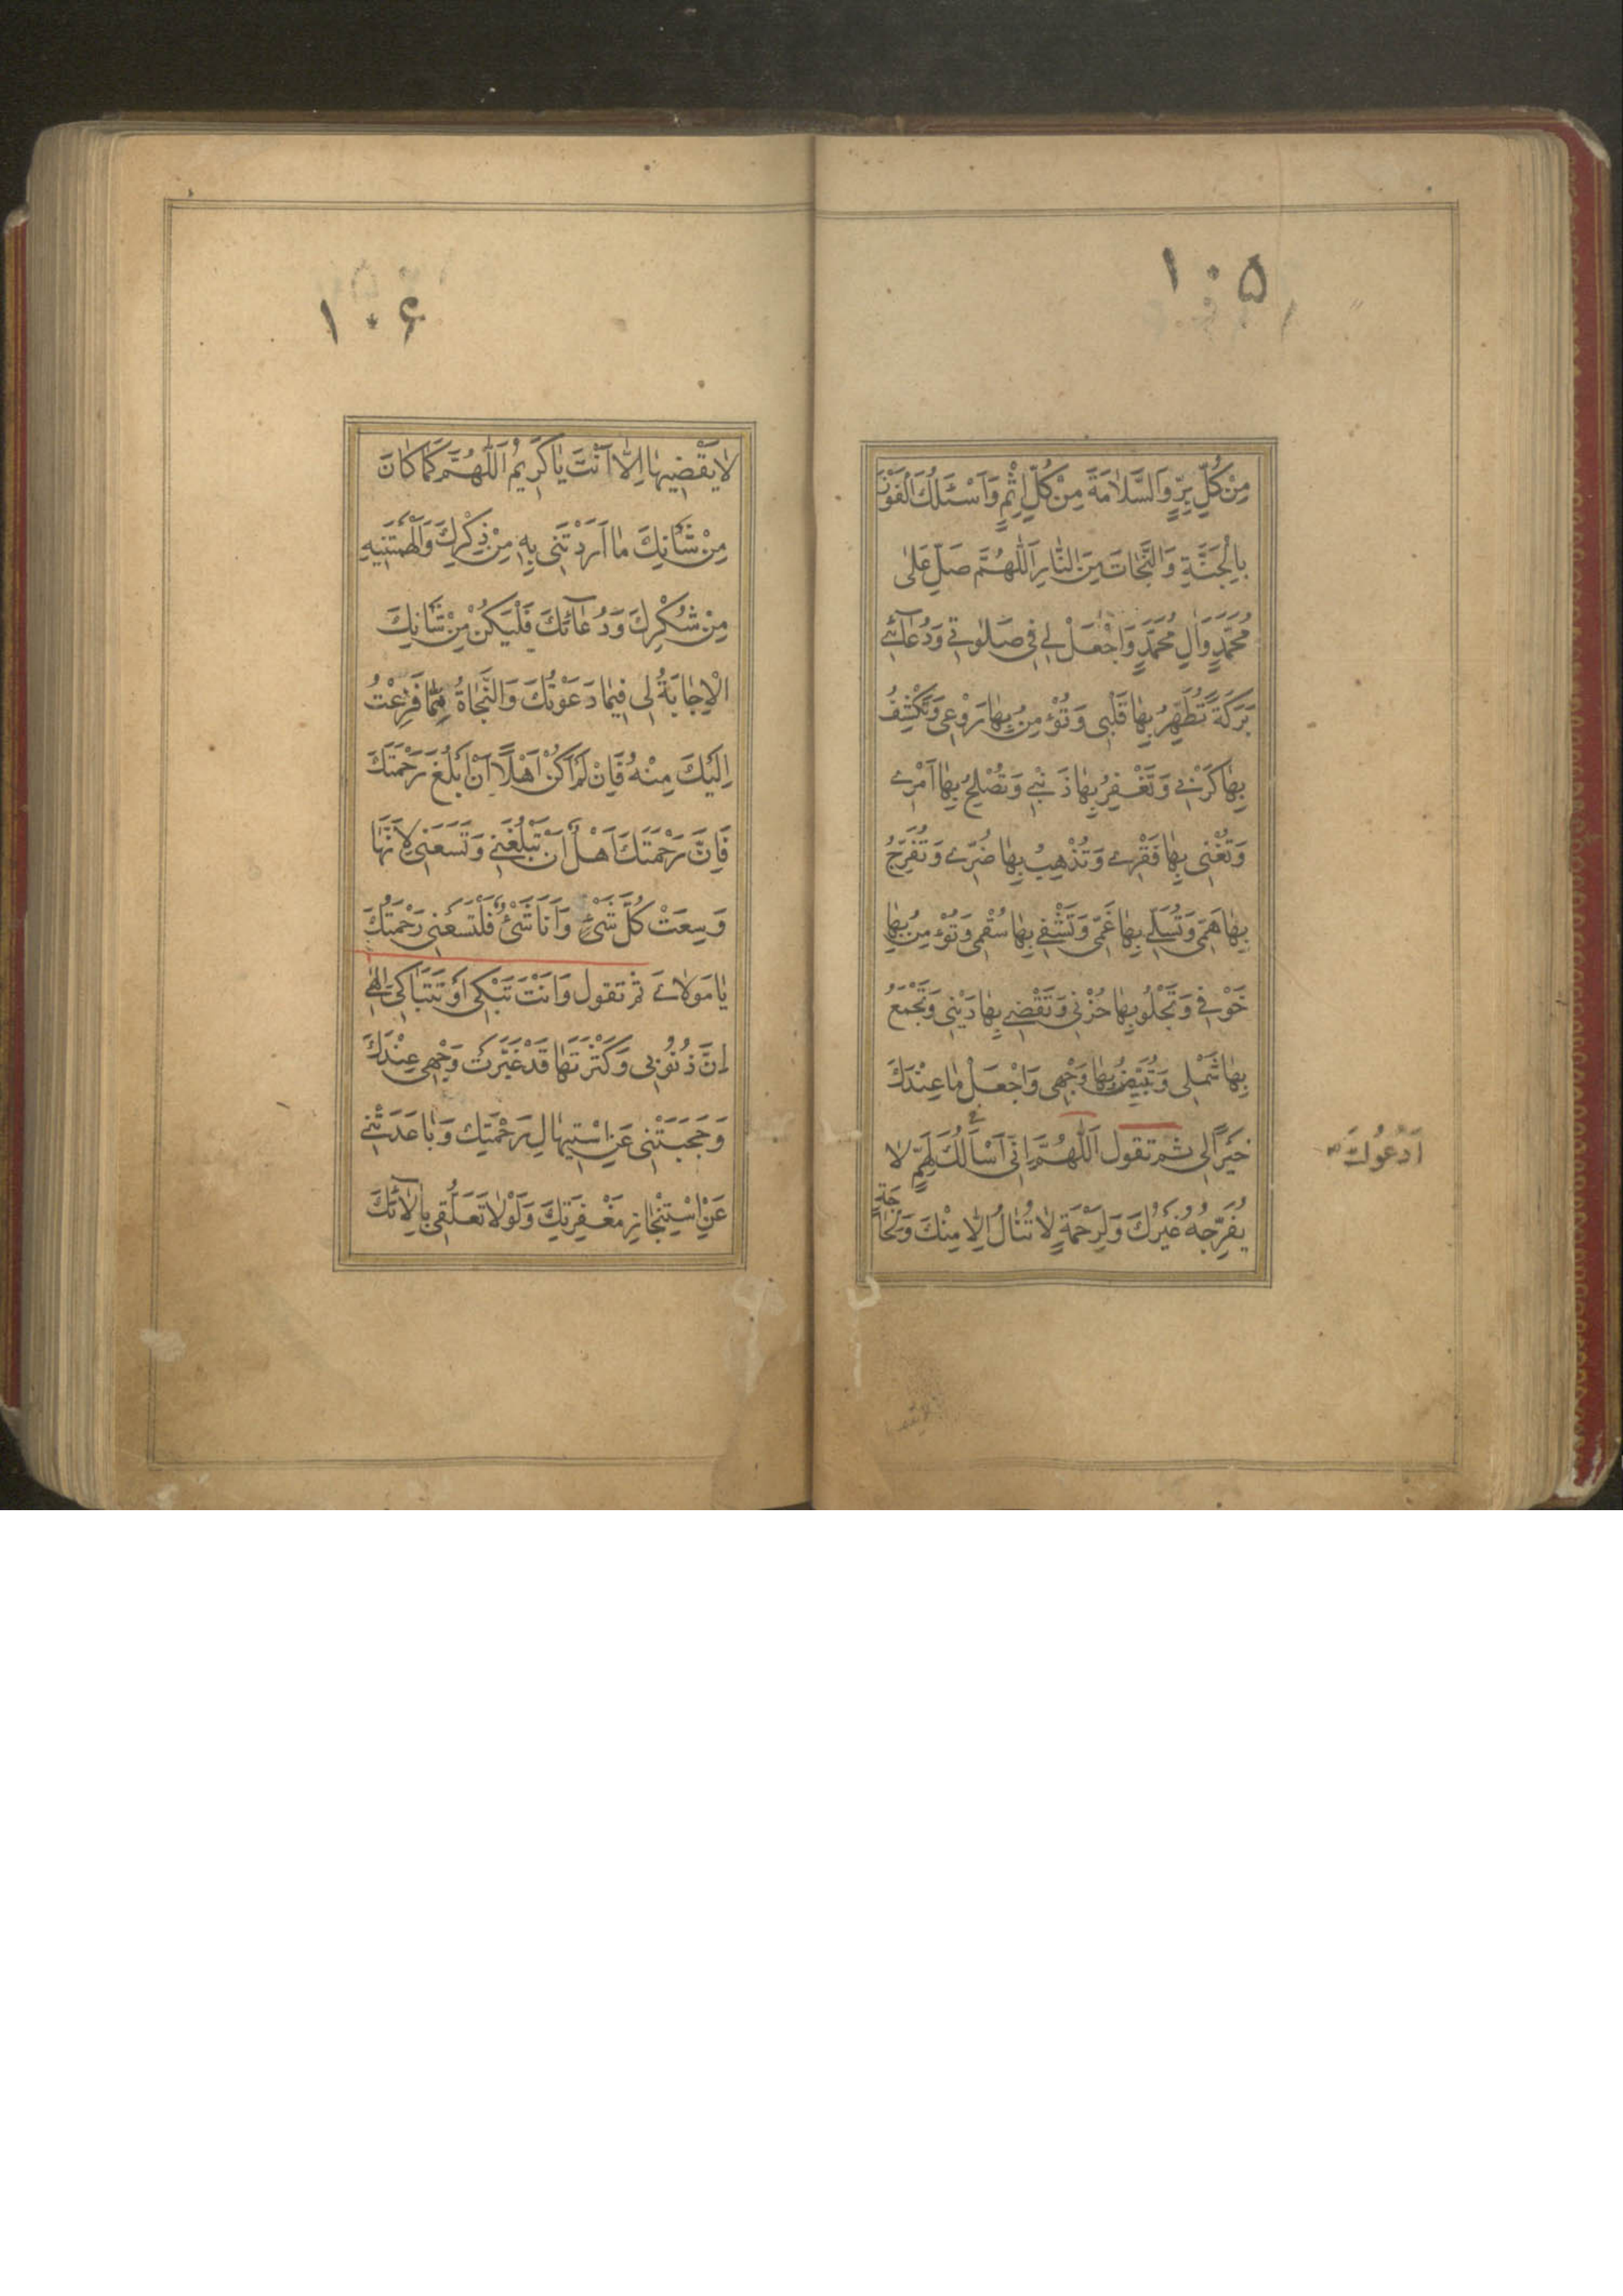 ۱۰۵
مِنْ كُلِّ بِرٍّ وَالسَّلَامَةَ مِنْ كُلِّ اِثْمٍ وَاَسْئَلُكَ الْفَوْزَ
بِالْجَنَّةِ وَالنَّجَاتَ مِنَ النَّارِ اَللّٰهُمَّ صَلِّ عَلٰى
مُحَمَّدٍ وَاٰلِ مُحَمَّدٍ وَاجْعَلْ لِي فِي صَلٰوتِي وَدُعَآئِي
بَرَكَةً تُطَهِّرُ بِهَا قَلْبِي وَتُؤْمِنُ بِهَا رَوْعِي وَتَكْشِفُ
بِهَا كَرْبِي وَتَغْفِرُ بِهَا ذَنْبِي وَتُصْلِحُ بِهَا اَمْرِي
وَتُغْنِي بِهَا فَقْرِي وَتُذْهِبُ بِهَا ضُرِّي وَتُفَرِّجُ
بِهَا هَمِّي وَتُسَلِّي بِهَا غَمِّي وَتَشْفِي بِهَا سُقْمِي وَتُؤْمِنُ بِهَا
خَوْفِي وَتَجْلُو بِهَا حُزْنِي وَتَقْضِي بِهَا دَيْنِي وَتَجْمَعُ
بِهَا شَمْلِي وَتُبَيِّضُ بِهَا وَجْهِي وَاجْعَلْ مَا عِنْدَكَ
خَيْرًا لِي ثم تقول اَللّٰهُمَّ اِنِّي اَسْاَلُكَ لِهَمٍّ لَا
اَدْعُوكَ
يُفَرِّجُهُ غَيْرُكَ وَلِرَحْمَةٍ لَا تُنَالُ اِلَّا مِنْكَ وَلِحَاجَةٍ
۱۰۶
لَا يَقْضِيهَا اِلَّا اَنْتَ يَا كَرِيمُ اَللّٰهُمَّ كَمَا كَانَ
مِنْ شَاْنِكَ مَا اَرَدْتَنِي بِهِ مِنْ ذِكْرِكَ وَاَلْهَمْتَنِيهِ
مِنْ شُكْرِكَ وَدُعَآئِكَ فَلْيَكُنْ مِنْ شَاْنِكَ
الْاِجَابَةُ لِي فِيمَا دَعَوْتُكَ وَالنَّجَاةُ مِمَّا فَزِعْتُ
اِلَيْكَ مِنْهُ فَاِنْ لَمْ اَكُنْ اَهْلًا اَنْ اَبْلُغَ رَحْمَتَكَ
فَاِنَّ رَحْمَتَكَ اَهْلٌ اَنْ تَبْلُغَنِي وَتَسَعَنِي لِاَنَّهَا
وَسِعَتْ كُلَّ شَيْءٍ وَاَنَا شَيْءٌ فَلْتَسَعْنِي رَحْمَتُكَ
يَا مَوْلَايَ ثم تقول وَاَنْتَ تَبْكِي اَوْ تَتَبَاكِيَ اِلٰهِي
اِنَّ ذُنُوبِي وَكَثْرَتَهَا قَدْ غَيَّرَتْ وَجْهِي عِنْدَكَ
وَحَجَبَتْنِي عَنِ اسْتِيهَالِ رَحْمَتِكَ وَبَاعَدَتْنِي
عَنِ اسْتِنْجَازِ مَغْفِرَتِكَ وَلَوْلَا تَعَلُّقِي بِاٰلَآئِكَ